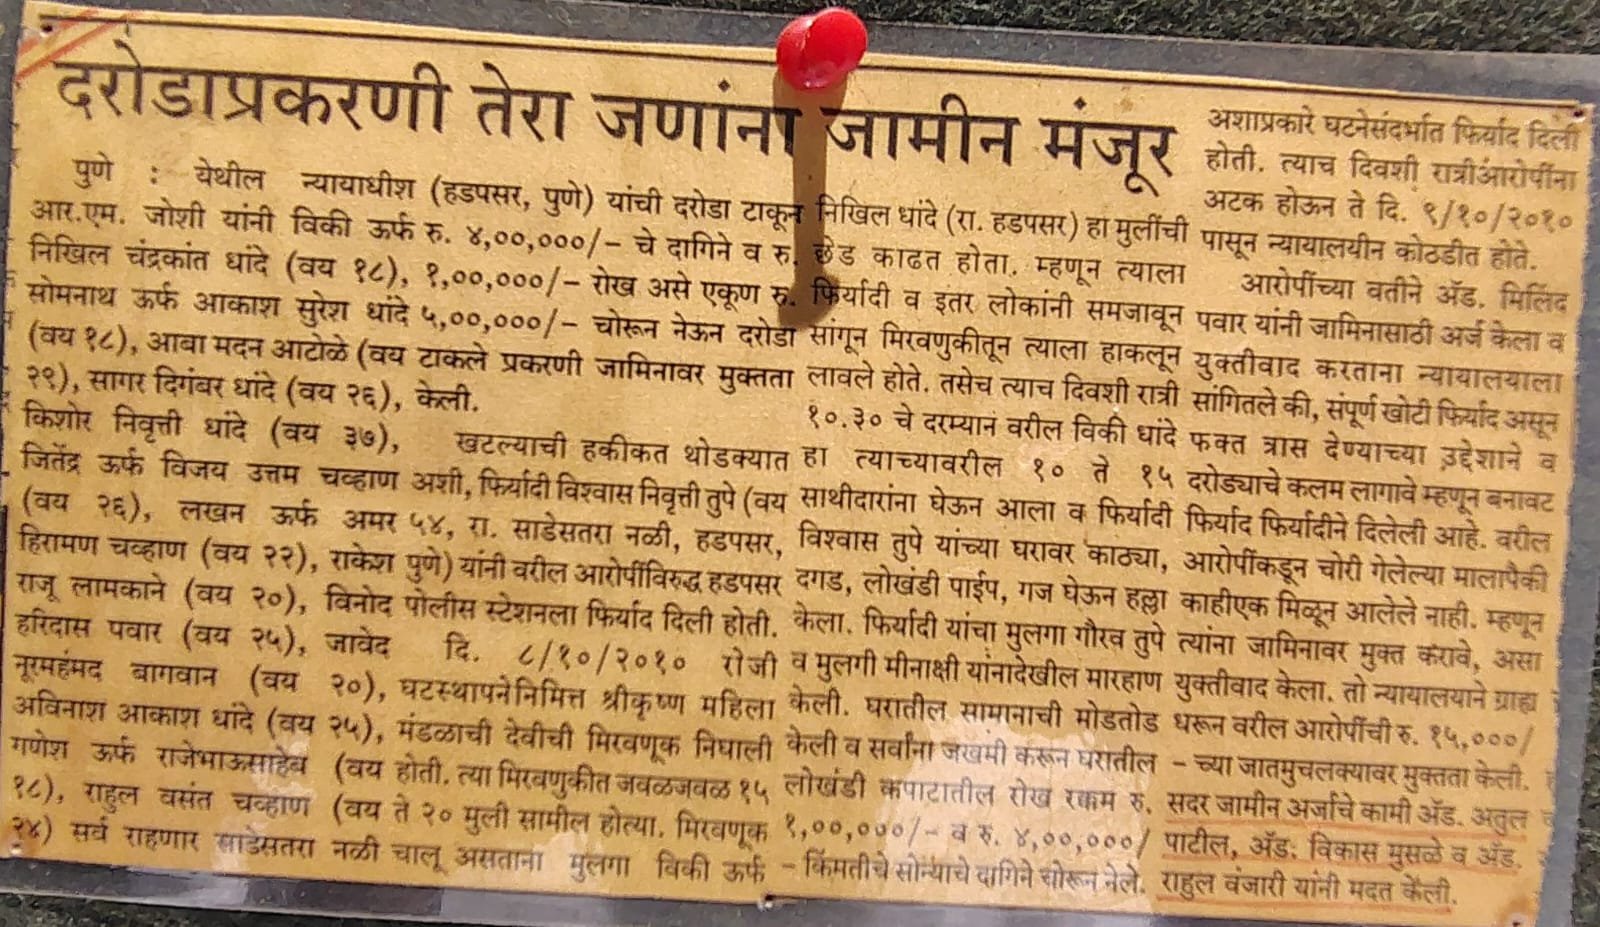 दरोडाप्रकरणी तेरा जणांना जामीन मंजूर
पुणे : येथील न्यायाधीश
आर.एम. जोशी यांनी विकी ऊर्फ
निखिल चंद्रकांत धांदे (वय १८),
सोमनाथ ऊर्फ आकाश सुरेश धांदे
(वय १८), आबा मदन आटोळे (वय
२९), सागर दिगंबर धांदे (वय २६),
किशोर निवृत्ती धांदे (वय ३७),
जितेंद्र ऊर्फ विजय उत्तम चव्हाण
(वय २६), लखन ऊर्फ अमर
हिरामण चव्हाण (वय २२), राकेश
राजू लामकाने (वय २०), विनोद
हरिदास पवार (वय २५), जावेद
नूरमहंमद बागवान (वय २०),
अविनाश आकाश धांदे (वय २५),
गणेश ऊर्फ राजेभाऊसाहेब (वय
१८), राहुल वसंत चव्हाण (वय
२४) सर्व राहणार साडेसतरा नळी
(हडपसर, पुणे) यांची दरोडा टाकून
रु. ४,००,०००/- चे दागिने व रु.
१,००,०००/- रोख असे एकूण रु.
५,००,०००/- चोरून नेऊन दरोडा
टाकले प्रकरणी जामिनावर मुक्तता
केली.
खटल्याची हकीकत थोडक्यात
अशी, फिर्यादी विश्वास निवृत्ती तुपे (वय
५४, रा. साडेसतरा नळी, हडपसर,
पुणे) यांनी वरील आरोपींविरुद्ध हडपसर
पोलीस स्टेशनला फिर्याद दिली होती.
दि. ८/१०/२०१० रोजी
घटस्थापनेनिमित्त श्रीकृष्ण महिला
मंडळाची देवीची मिरवणूक निघाली
होती. त्या मिरवणुकीत जवळजवळ १५
ते २० मुली सामील होत्या. मिरवणूक
चालू असताना मुलगा विकी ऊर्फ
निखिल धांदे (रा. हडपसर) हा मुलींची
छेड काढत होता. म्हणून त्याला
फिर्यादी व इतर लोकांनी समजावून
सांगून मिरवणुकीतून त्याला हाकलून
लावले होते. तसेच त्याच दिवशी रात्री
१०.३० चे दरम्यान वरील विकी धांदे
हा त्याच्यावरील १० ते १५
साथीदारांना घेऊन आला व फिर्यादी
विश्वास तुपे यांच्या घरावर काठ्या,
दगड, लोखंडी पाईप, गज घेऊन हल्ला
केला. फिर्यादी यांचा मुलगा गौरव तुपे
व मुलगी मीनाक्षी यांनादेखील मारहाण
केली. घरातील सामानाची मोडतोड
केली व सर्वांना जखमी करून घरातील
लोखंडी कपाटातील रोख रक्कम रु.
१,००,०००/- व रु. ४,००,०००/
- किंमतीचे सोन्याचे दागिने चोरून नेले.
अशाप्रकारे घटनेसंदर्भात फिर्याद दिली
होती. त्याच दिवशी रात्रीआरोपींना
अटक होऊन ते दि. ९/१०/२०१०
पासून न्यायालयीन कोठडीत होते.
आरोपींच्या वतीने ॲड. मिलिंद
पवार यांनी जामिनासाठी अर्ज केला व
युक्तीवाद करताना न्यायालयाला
सांगितले की, संपूर्ण खोटी फिर्याद असून
फक्त त्रास देण्याच्या उद्देशाने व
दरोड्याचे कलम लागावे म्हणून बनावट
फिर्याद फिर्यादीने दिलेली आहे. वरील
आरोपींकडून चोरी गेलेल्या मालापैकी
काहीएक मिळून आलेले नाही. म्हणून
त्यांना जामिनावर मुक्त करावे, असा
युक्तीवाद केला. तो न्यायालयाने ग्राह्य
धरून वरील आरोपींची रु. १५,०००/
- च्या जातमुचलक्यावर मुक्तता केली.
सदर जामीन अर्जाचे कामी ॲड. अतुल
पाटील, ॲड. विकास मुसळे व ॲड.
राहुल वंजारी यांनी मदत केली.